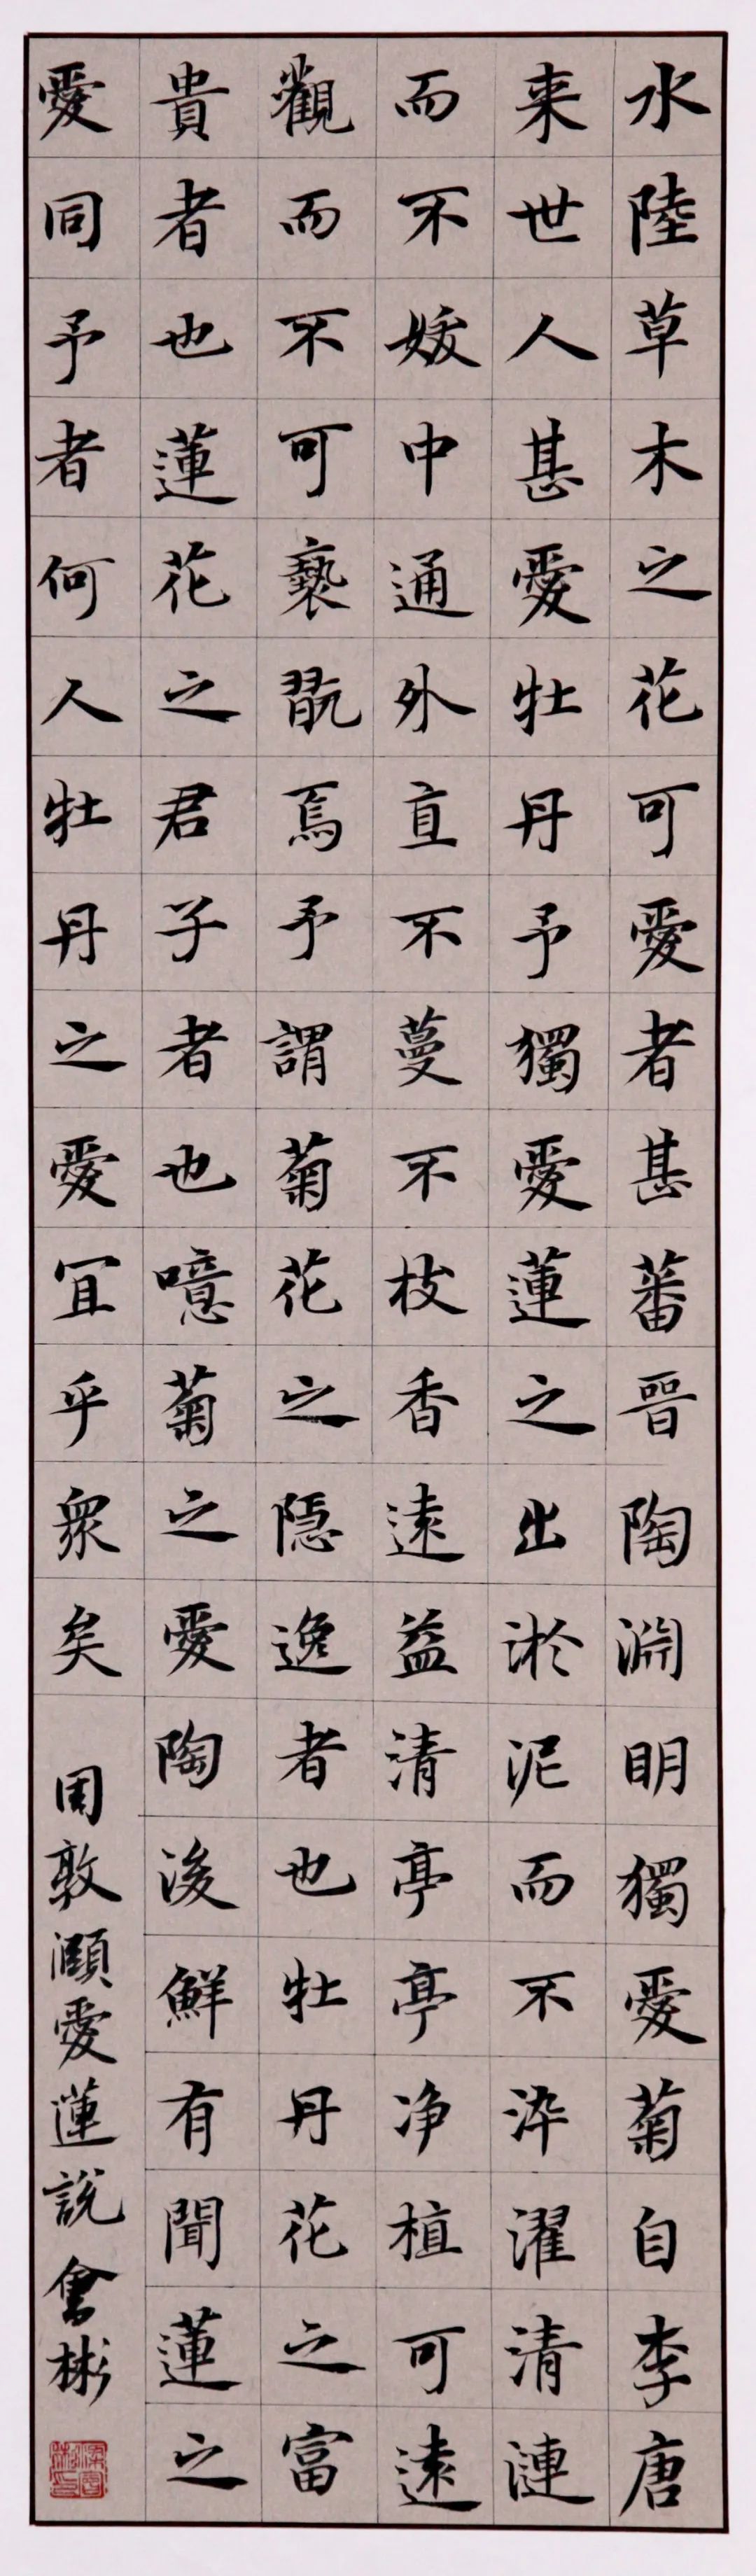 水陸草木之花可愛者甚蕃晉陶淵明獨愛菊自李唐
来世人甚愛牡丹予獨愛蓮之出淤泥而不染濯清漣
而不妖中通外直不蔓不枝香遠益清亭亭净植可遠
觀而不可褻翫焉予謂菊花之隱逸者也牡丹花之富
貴者也蓮花之君子者也噫菊之愛陶後鮮有聞蓮之
愛同予者何人牡丹之愛宜乎衆矣
周敦頤愛蓮說會彬